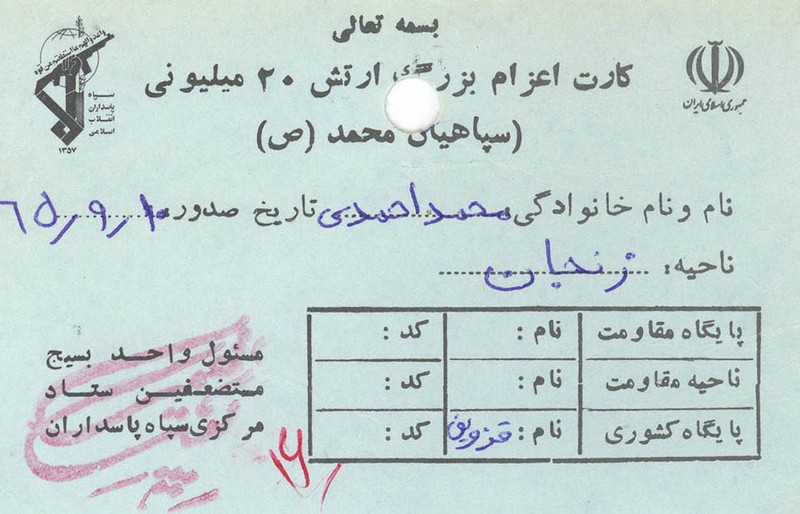 بسمه تعالی
کارت اعزام بزرگ ارتش ۲۰ میلیونی
(سپاهیان محمد (ص)
جمهوری اسلامی ایران
سپاه
پاسداران
انقلاب
اسلامی
۱۳۵۷
نام و نام خانوادگی: محمد احمدی تاریخ صدور: ۶۵/۹/۱۰
ناحیه: زنجان
پایگاه مقاومت نام: کد:
ناحیه مقاومت نام: کد:
پایگاه کشوری نام: قزوین کد:
مسئول واحد بسیج
مستضعفین ستاد
مرکزی سپاه پاسداران